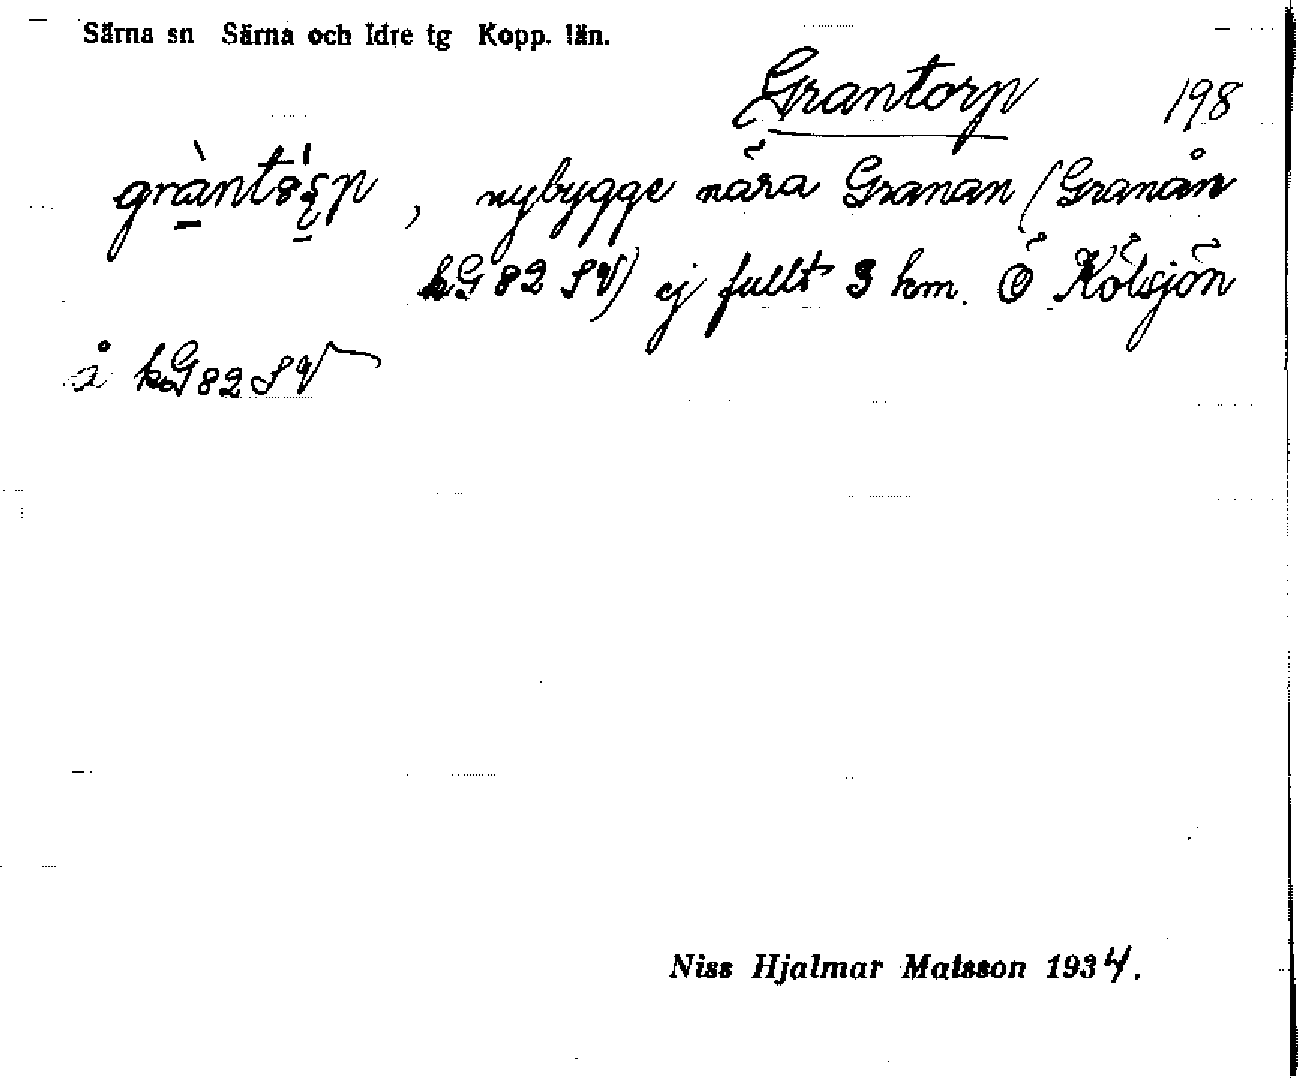 Särna sn Särna och Idre tg Kopp. län.
Grantorp 198
, nybygge nära Granan (Granån
kG 82 SV) ej fullt 3 km. Ö Kölsjön
å kG 82 SV
Niss Hjalmar Matsson 1934.